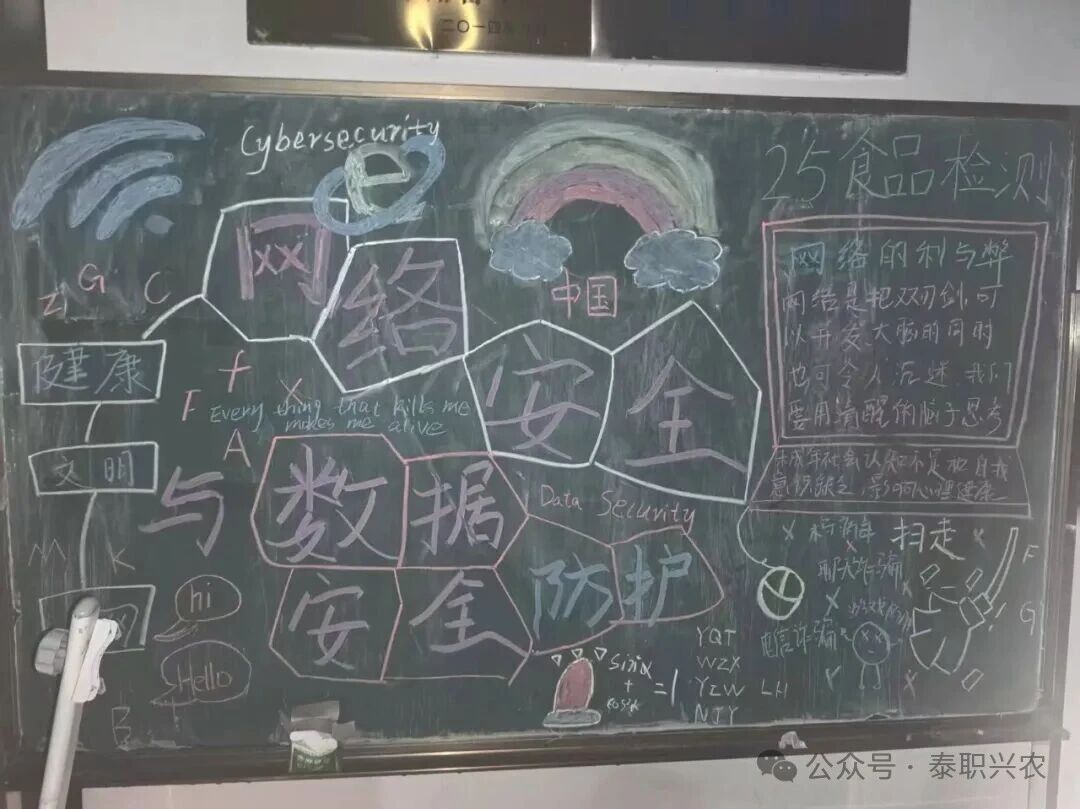 二〇一四年
Cybersecurity
25食品检测
网络
安全
与数据
安全
防护
中国
Z G C
健康
文明
网
f
F X
A
Every thing that kills me
makes me alive
Data Security
M K
hi
Hello
B
网络的利与弊
网络是把双刃剑,可
以开发大脑的同时
也可令人沉迷,我们
要用清醒的脑子思考
未成年社会认知不足和自我
意识缺乏,影响心理健康
木马病毒
扫走
聊天诈骗
短信诈骗
F
G
YQT
WZX
YZW LH
NJY
=1
公众号 · 泰职兴农